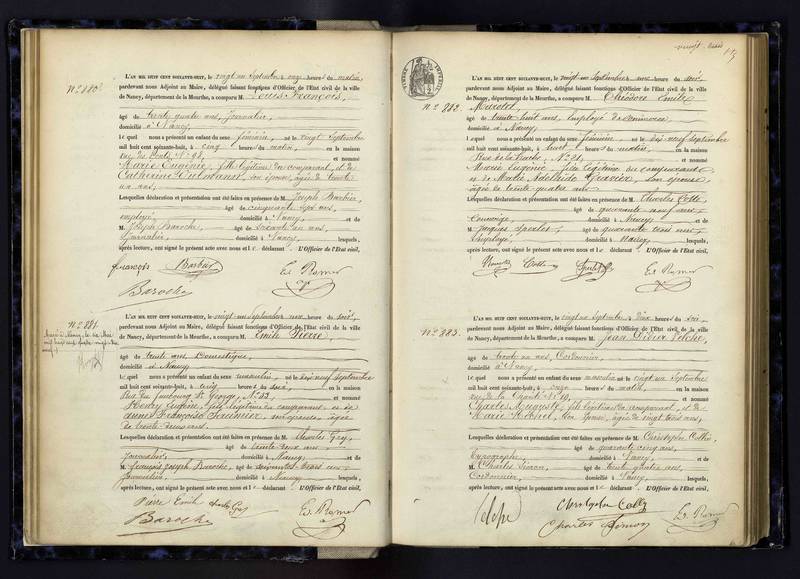 N° 880
L'AN MIL HUIT CENT SOIXANTE-HUIT, le vingt un Septembre onze heures du matin,
pardevant nous Adjoint au Maire, délégué faisant fonctions d'Officier de l'Etat civil de la ville
de Nancy, département de la Meurthe, a comparu M. Louis François,
âgé de trente quatre ans, Journalier,
domicilié à Nancy,
Lequel nous a présenté un enfant du sexe féminin, né le vingt Septembre
mil huit cent soixante-huit, à cinq heures du matin, en la maison
rue du N° 98, et nommé
Marie Eugénie, fille légitime du comparant, et de
Catherine son épouse, âgée de trente
un ans,
Lesquelles déclaration et présentation ont été faites en présence de M. Joseph Barbier,
âgé de cinquante sept ans,
employé, domicilié à Nancy, et de
M. Joseph Baroche, âgé de soixante un ans,
Journalier, domicilié à Nancy, lesquels,
après lecture, ont signé le présent acte avec nous et le déclarant. L'Officier de l'Etat civil,
françois Barbier Ed. Ramer
Baroche
N° 881.
L'AN MIL HUIT CENT SOIXANTE-HUIT, le vingt un Septembre une heure du soir,
pardevant nous Adjoint au Maire, délégué faisant fonctions d'Officier de l'Etat civil de la ville
de Nancy, département de la Meurthe, a comparu M. Emile Pierre,
âgé de trente ans, Domestique,
domicilié à Nancy
Lequel nous a présenté un enfant du sexe masculin, né le dix neuf Septembre
mil huit cent soixante-huit, à cinq heures du soir, en la maison
Rue du faubourg St Georges, N° 32, et nommé
Henry Eugène, fils légitime du comparant, et de
Anne Françoise son épouse, âgée
de trente deux ans.
Lesquelles déclaration et présentation ont été faites en présence de M. Charles Gey,
âgé de trente deux ans,
Journalier, domicilié à Nancy, et de
M. François Joseph Baroche, âgé de soixante trois ans
Journalier, domicilié à Nancy lesquels,
après lecture, ont signé le présent acte avec nous et le déclarant. L'Officier de l'Etat civil,
Pierre Emile Charles Gey Ed. Ramer
Baroche
N° 882.
L'AN MIL HUIT CENT SOIXANTE-HUIT, le vingt un Septembre une heure du soir,
pardevant nous Adjoint au Maire, délégué faisant fonctions d'Officier de l'Etat civil de la ville
de Nancy, département de la Meurthe, a comparu M. Théodore Emile
âgé de trente huit ans, Employé de commerce,
domicilié à Nancy,
Lequel nous a présenté un enfant du sexe féminin, né le dix neuf Septembre
mil huit cent soixante-huit, à huit heures du matin, en la maison
Rue de la N° 21, et nommé
Marie Eugénie, fille légitime du comparant
et de Marie Adelhide son épouse,
âgée de trente quatre ans
Lesquelles déclaration et présentation ont été faites en présence de M. Charles Colle,
âgé de quarante neuf ans,
Concierge, domicilié à Nancy, et de
M. Jacques âgé de quarante trois ans,
domicilié à Nancy, lesquels,
après lecture, ont signé le présent acte avec nous et le déclarant. L'Officier de l'Etat civil,
Colle Ed. Ramer
N° 883.
L'AN MIL HUIT CENT SOIXANTE-HUIT, le vingt un Septembre deux heures du soir,
pardevant nous Adjoint au Maire, délégué faisant fonctions d'Officier de l'Etat civil de la ville
de Nancy, département de la Meurthe, a comparu M. Jean Didier Pelche,
âgé de trente un ans, Cordonnier,
domicilié à Nancy,
Lequel nous a présenté un enfant du sexe masculin né le vingt un Septembre
mil huit cent soixante-huit, à onze heures du matin, en la maison
rue de la Charité N° 19, et nommé
Charles Auguste, fils légitime du comparant, et de
Marie son épouse, âgée de vingt trois ans,
Lesquelles déclaration et présentation ont été faites en présence de M. Christophe Collin,
âgé de quarante cinq ans,
Typographe, domicilié à Nancy, et de
M. Charles Simon, âgé de trente quatre ans,
Cordonnier, domicilié à Nancy, lesquels,
après lecture, ont signé le présent acte avec nous et le déclarant. L'Officier de l'Etat civil,
Pelche Christophe Collin Ed. Ramer
Charles Simon